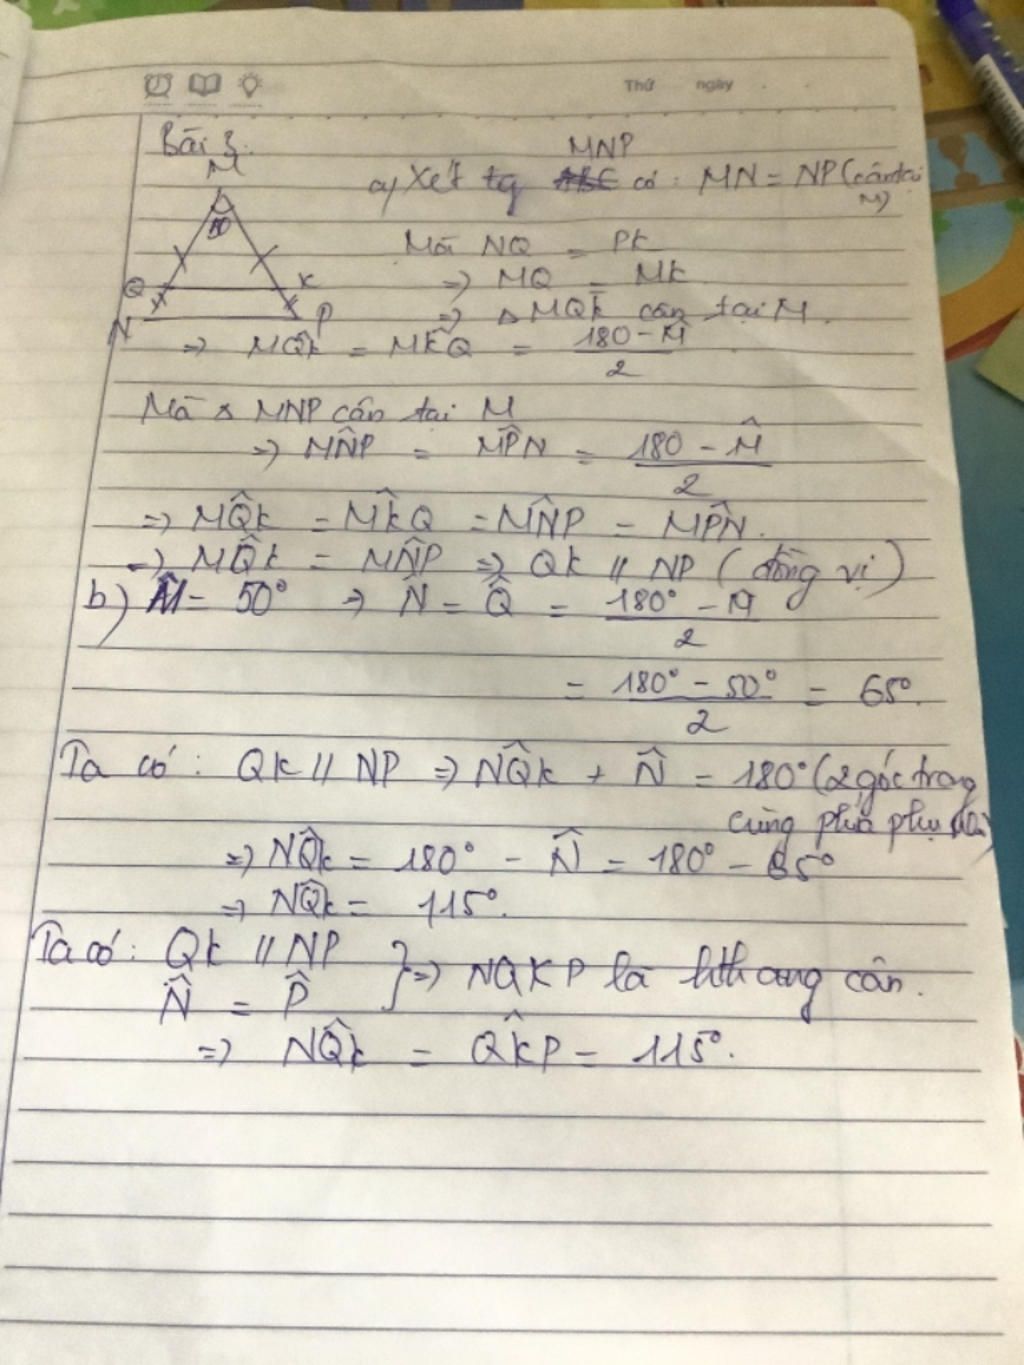 Thứ ngày
Bài 3:
MNP
a) Xét tg ABC có: MN = NP (cân tại
M)
M
50
Q K
N P
Mà NQ = PK
=> MQ = MK
=> △MQK cân tại M.
=> MQ̂K = MK̂Q = 180 - M̂
2
Mà △ MNP cân tại M
=> MN̂P = MP̂N = 180 - M̂
2
=> MQ̂K = MK̂Q = MN̂P = MP̂N.
=> MQ̂K = MN̂P => QK // NP (đồng vị)
b) M̂ = 50° => N̂ = Q̂ = 180° - M̂
2
= 180° - 50° = 65°.
2
Ta có: QK // NP => NQ̂K + N̂ = 180° (2 góc trong
cùng phía phụ
=> NQ̂K = 180° - N̂ = 180° - 65°
=> NQ̂K = 115°.
Ta có: QK // NP } => NQKP là hthang cân.
N̂ = P̂
=> NQ̂K = QK̂P = 115°.